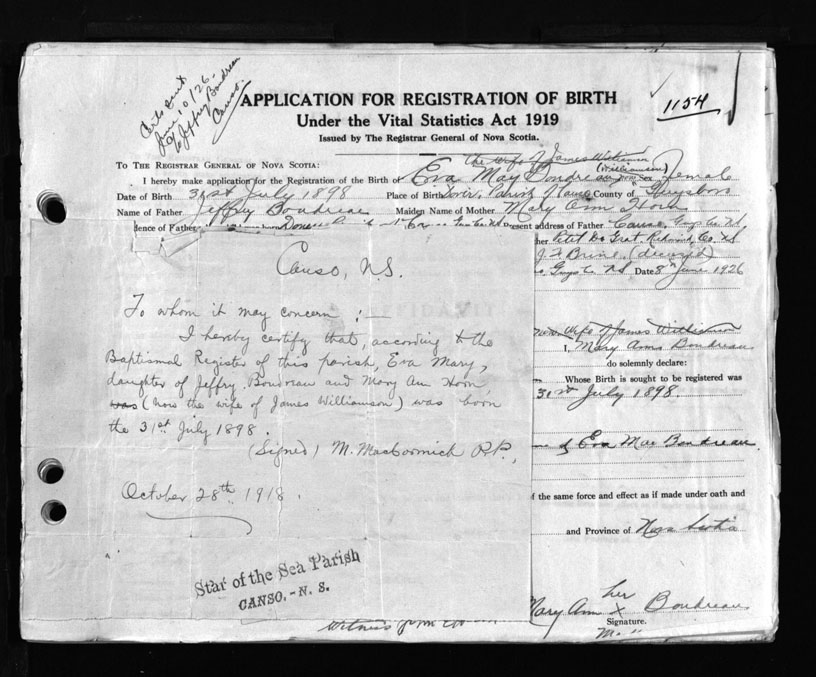 Certs sent
June 10/26.
to Jeffry Boudreau
Canso.
1154
APPLICATION FOR REGISTRATION OF BIRTH
Under the Vital Statistics Act 1919
Issued by The Registrar General of Nova Scotia.
the wife of James Williamson
(Williamson)
TO THE REGISTRAR GENERAL OF NOVA SCOTIA:
I hereby make application for the Registration of the Birth of Eva May Boudreau Sex Female
Date of Birth 31st July 1898 Place of Birth Parish of Canso County of Guysboro
Name of Father Jeffry Boudreau Maiden Name of Mother Mary Ann Horn
dence of Father Present address of Father Canso, Guys Co. N.S.
her Petit De Grat, Richmond Co. N.S.
J. Brine (deceas'd)
Guys Co N.S Date 8th June 1926
Canso, N.S.
To whom it may concern:
I hereby certify that, according to the
Baptismal Register of this parish, Eva Mary,
daughter of Jeffry Boudreau and Mary Ann Horn
was (now the wife of James Williamson) was born
the 31st July 1898.
(Signed) M. MacCormick P.P.,
October 28th 1918.
Star of the Sea Parish
CANSO,-N. S.
now wife of James Williamson
I, Mary Ann Boudreau
do solemnly declare:
Whose Birth is sought to be registered was
31st July 1898.
of Eva Mae Boudreau.
f the same force and effect as if made under oath and
and Province of Nova Scotia
her
Mary Ann X Boudreau
Signature.
Witness from